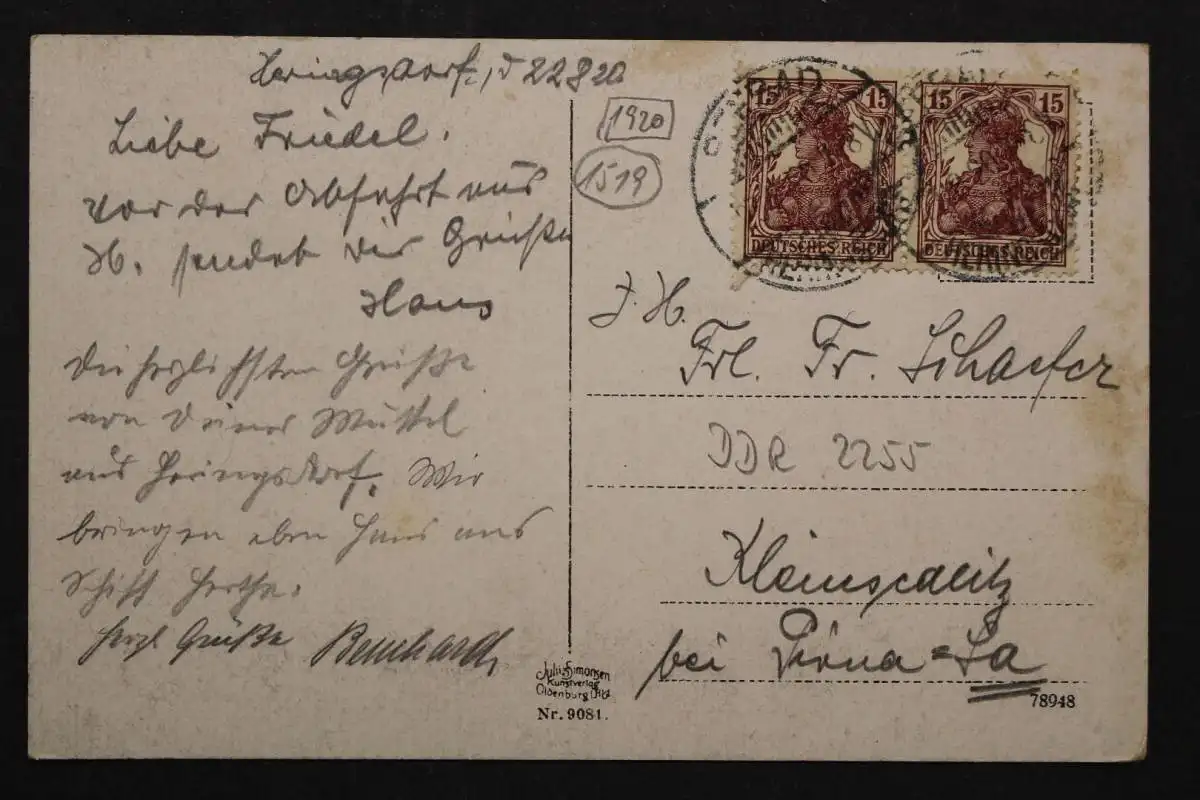 Heringsdorf, d 22 8 20
Liebe Friedel.
Vor der Abfahrt aus
H. sendet dir Grüße
Hans
Die herzlichsten Grüße
von Deiner Muttel
aus Heringsdorf. Wir
bringen eben Hans ans
Schiff Hertha.
Herzl Grüße Bernhard
1920
1519
BAD
15 15
DEUTSCHES REICH
15 15
DEUTSCHES REICH
Frl. Fr. Schaefer
DDR 2255
bei Pirna Sa
Julius Simonsen
Kunstverlag
Oldenburg
Nr. 9081.
78948